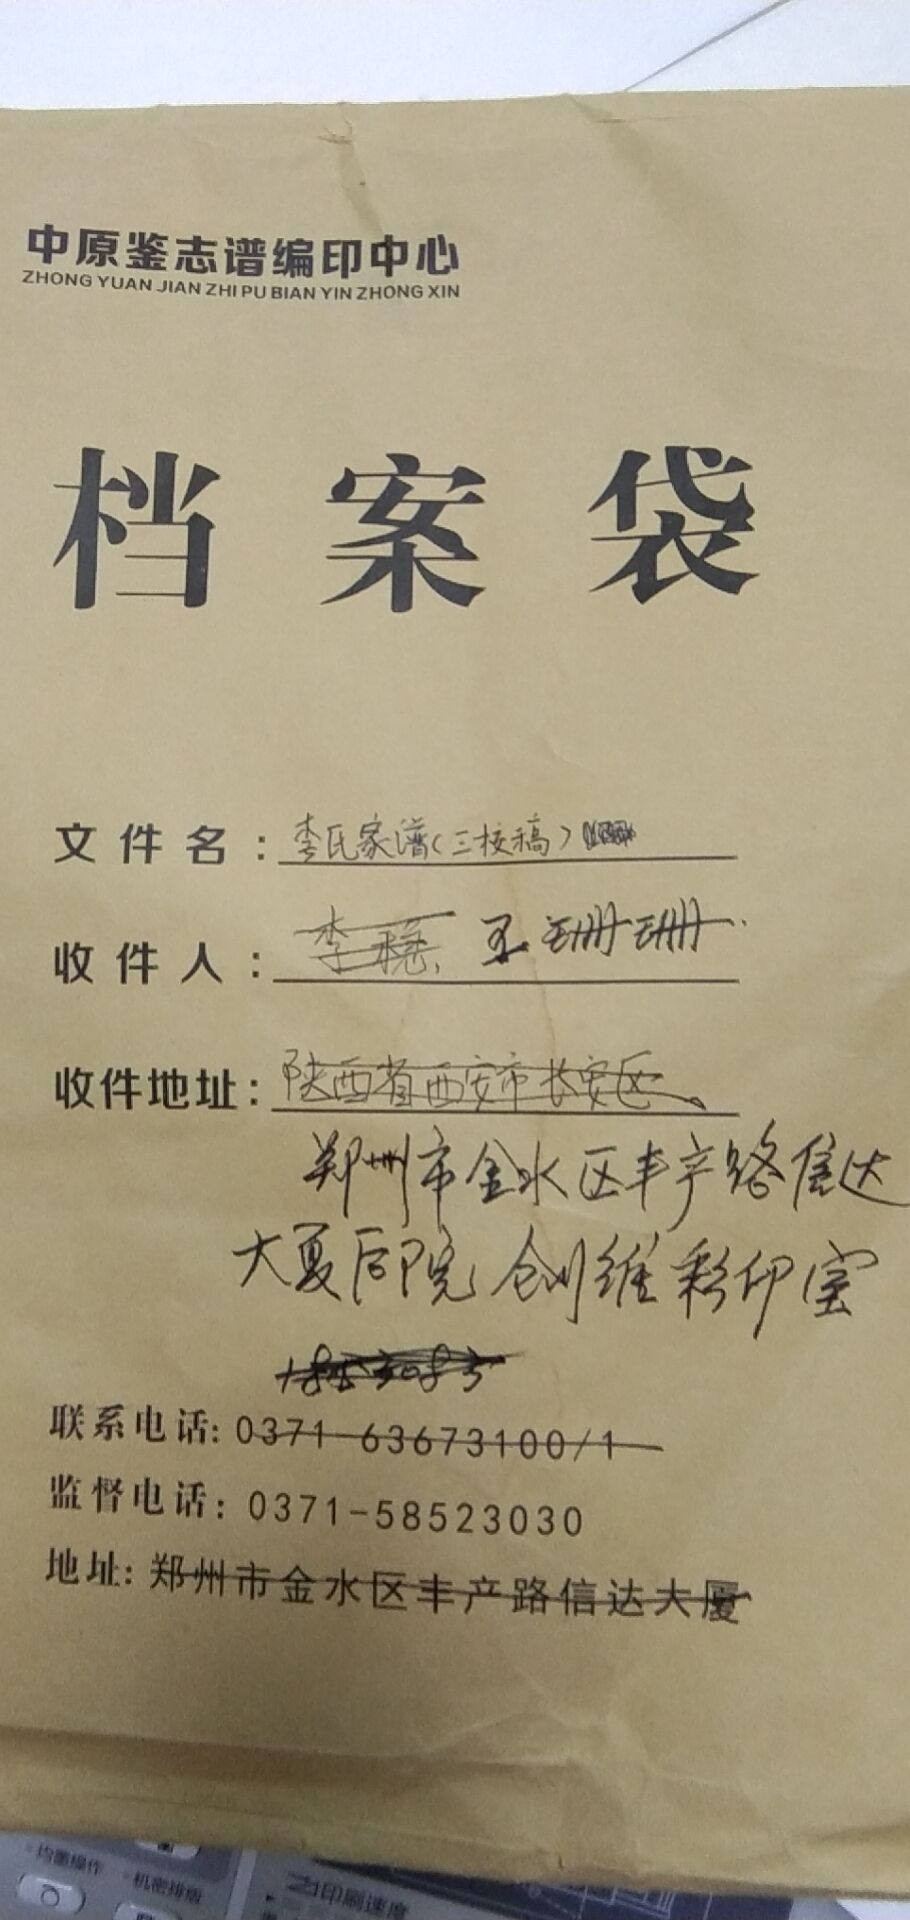 中原鉴志谱编印中心
ZHONG YUAN JIAN ZHI PU BIAN YIN ZHONG XIN
档案袋
文件名：李氏家谱（三校稿）
收件人：李稳 王珊珊
收件地址：陕西省西安市长安区
郑州市金水区丰产路信达
大夏后院创维彩印室
联系电话：0371-63673100/1
监督电话：0371-58523030
地址：郑州市金水区丰产路信达大厦
均墨操作
机密排版
印刷速度